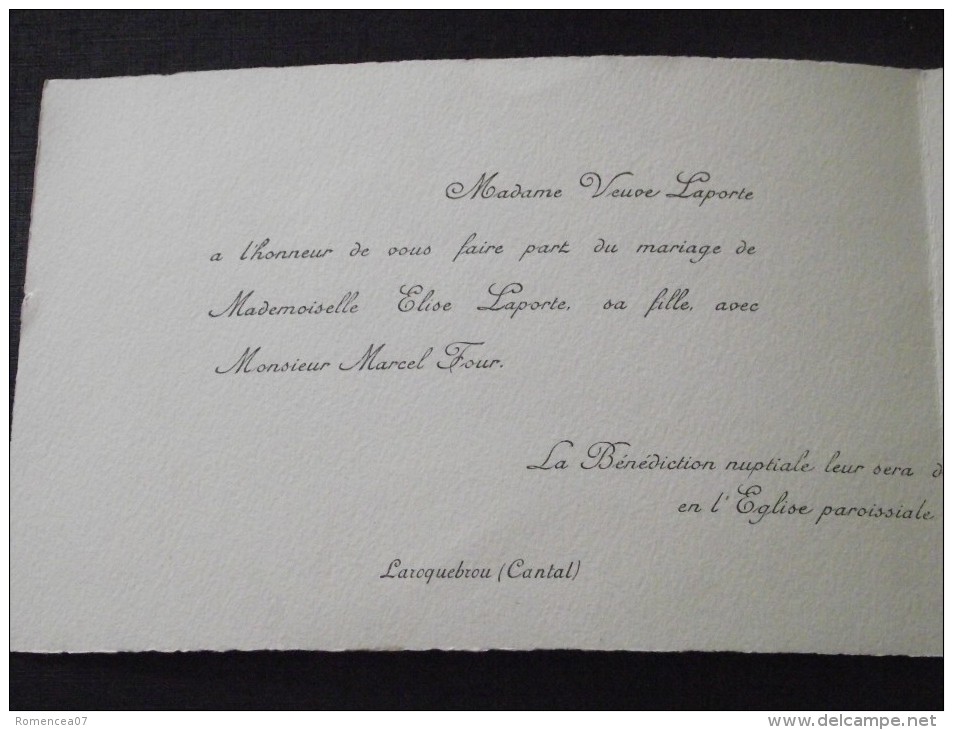 Madame Veuve Laporte
a l'honneur de vous faire part du mariage de
Mademoiselle Elise Laporte, sa fille, avec
Monsieur Marcel Four.
La Bénédiction nuptiale leur sera d
en l'Eglise paroissiale
Laroquebrou (Cantal)
Romencea07
www.delcampe.net